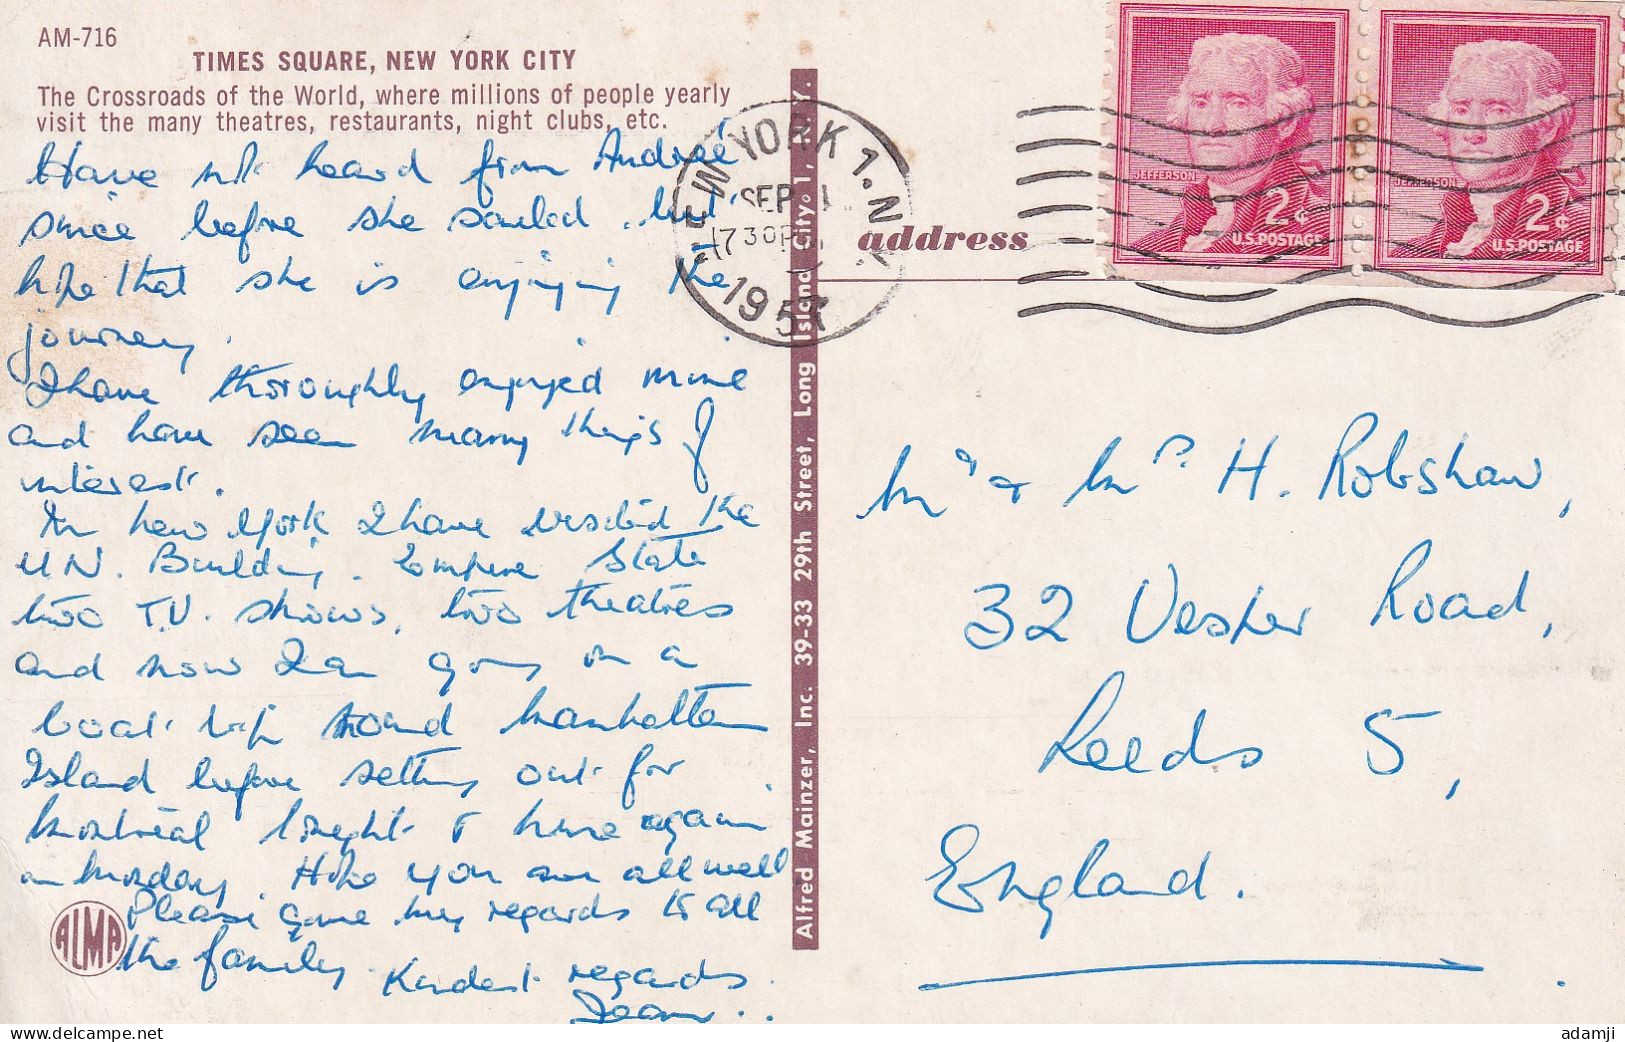 AM-716
TIMES SQUARE, NEW YORK CITY
The Crossroads of the World, where millions of people yearly
visit the many theatres, restaurants, night clubs, etc.
Have not heard from Andrée
since before she sailed, but
hope that she is enjoying the
journey.
I have thoroughly enjoyed mine
and have seen many things of
interest.
In New York I have visited the
UN. Building, Empire State
two T.V. shows, two theatres
and now I am going on a
boat trip round Manhattan
Island before setting out for
Montréal tonight & home again
on Monday. Hope you are all well
Please give my regards to all
the family.
Kindest regards.
Jean..
ALMA
Alfred Mainzer, Inc. 39-33 29th Street, Long Island City 1, N.Y.
NEW YORK 1. N.Y.
SEP
730P
195
JEFFERSON
2¢
U.S. POSTAGE
JEFFERSON
2¢
U.S. POSTAGE
address
Mr & Mrs. H. Robshaw,
32 Vesper Road,
Leeds 5,
England.
adamji